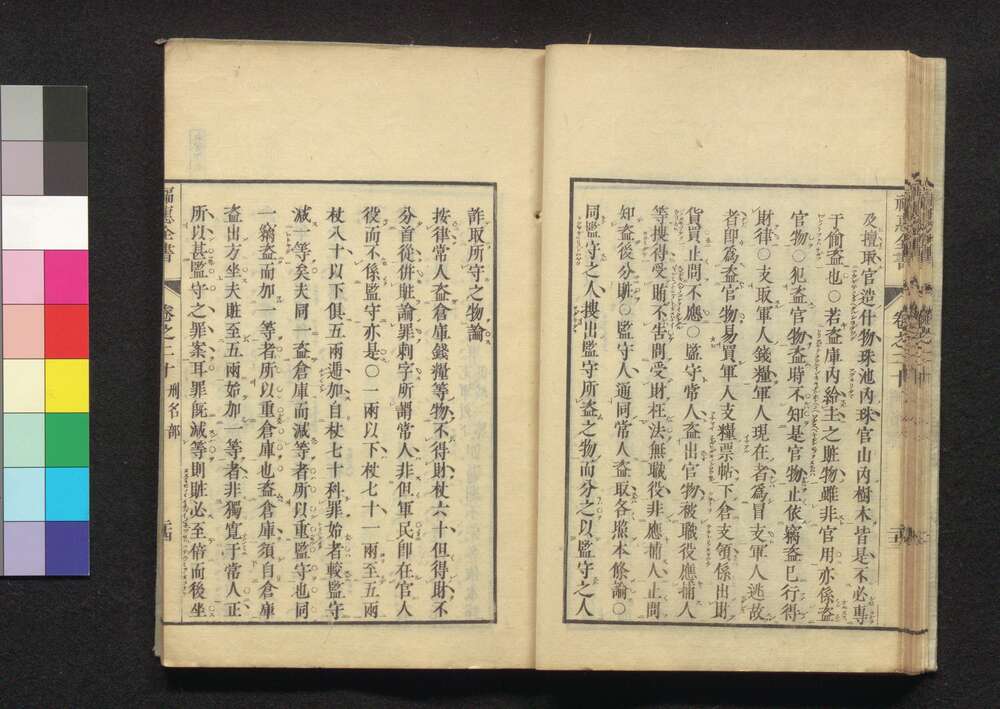 及擅取官造什物珠池內珠官山內樹木皆是不必專
于偷盜也○若盜庫內給主之贓物雖非官用亦係盜
官物○犯盜官物盜時不知是官物止依竊盜已行得
財律○支取軍人錢糧軍人現在者爲冒支軍人逃故
者卽爲盜官物易買軍人支糧票帖下倉支領係出財
貨買止問不應○監守常人盜出官物被職役應捕人
等搜得受賄不吿問受財枉法無職役非應捕人止問
知盜後分贓○監守人通同常人盜取各照本條論○
同監守之人搜出監守所盜之物而分之以監守之人
詐取所守之物論
按律常人盜倉庫錢糧等物不得財杖六十但得財不
分首從併贓論罪刺字所謂常人非但軍民卽在官人
役而不係監守亦是○一兩以下杖七十一兩至五兩
杖八十以下俱五兩遞加自杖七十科罪始者較監守
減一等矣夫同一盜倉庫而減等者所以重監守也同
一竊盜而加一等者所以重倉庫也盜倉庫須自倉庫
盜出方坐夫贓至五兩始加一等者非獨寬于常人正
所以甚監守之罪案耳罪既減等則贓必至倍而後坐
福惠全書
卷之二十
刑名部